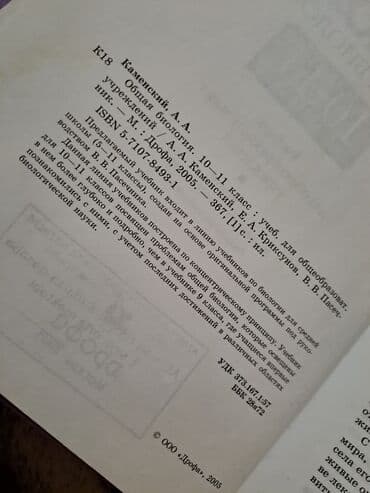 Каменский, А. А.
К18
Общая биология. 10—11 класс : учеб. для общеобразоват.
учреждений / А. А. Каменский, Е. А. Криксунов, В. В. Пасеч-
ник. — М. : Дрофа, 2005. — 367, [1] с. : ил.
ISBN 5-7107-8493-1
Предлагаемый учебник входит в линию учебников по биологии для средней
школы (5—11 классы), создан на основе оригинальной программы под руко-
водством В. В. Пасечника.
Данная линия учебников построена по концентрическому принципу. Учебник
для 10—11 классов посвящен проблемам общей биологии, которые освещены
в нем более глубоко и подробно, чем в учебнике 9 класса, где учащиеся впервые
познакомились с ними, с учетом последних достижений в различных областях
биологической науки.
УДК 373.167.1:57
ББК 28я72
© ООО «Дрофа», 2005
С
мира,
села его
живые о
ве лек